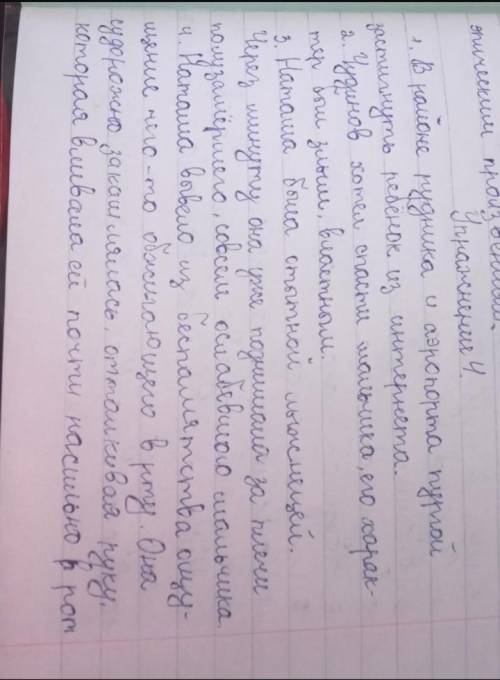 эпическим произведениям.
Упражнение 4.
1. В районе рудника и аэропорта пургой
застигнуть ребёнок из интерната.
2. Чудинов хотел спасти мальчика, его харак-
тер был злым, властным.
3. Наташа была опытной лыжницей.
Через минуту она уже поднимала за плечи
полузамёрзшего, совсем ослабевшего мальчика.
4. Наташа вывело из беспамятства ощу-
щение чего-то обжигающего в рту. Она
судорожно закашлялась, отталкивая руку,
которая вливала ей почти насильно в рот